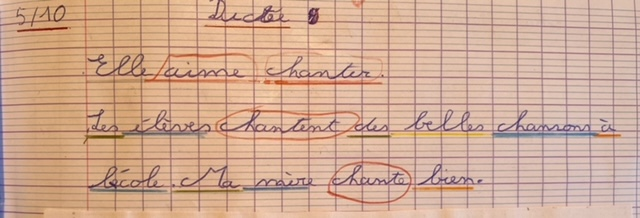 5/10 Dictée
Elle aime chanter.
Les élèves chantent des belles chansons à
l'école. Ma mère chante bien.